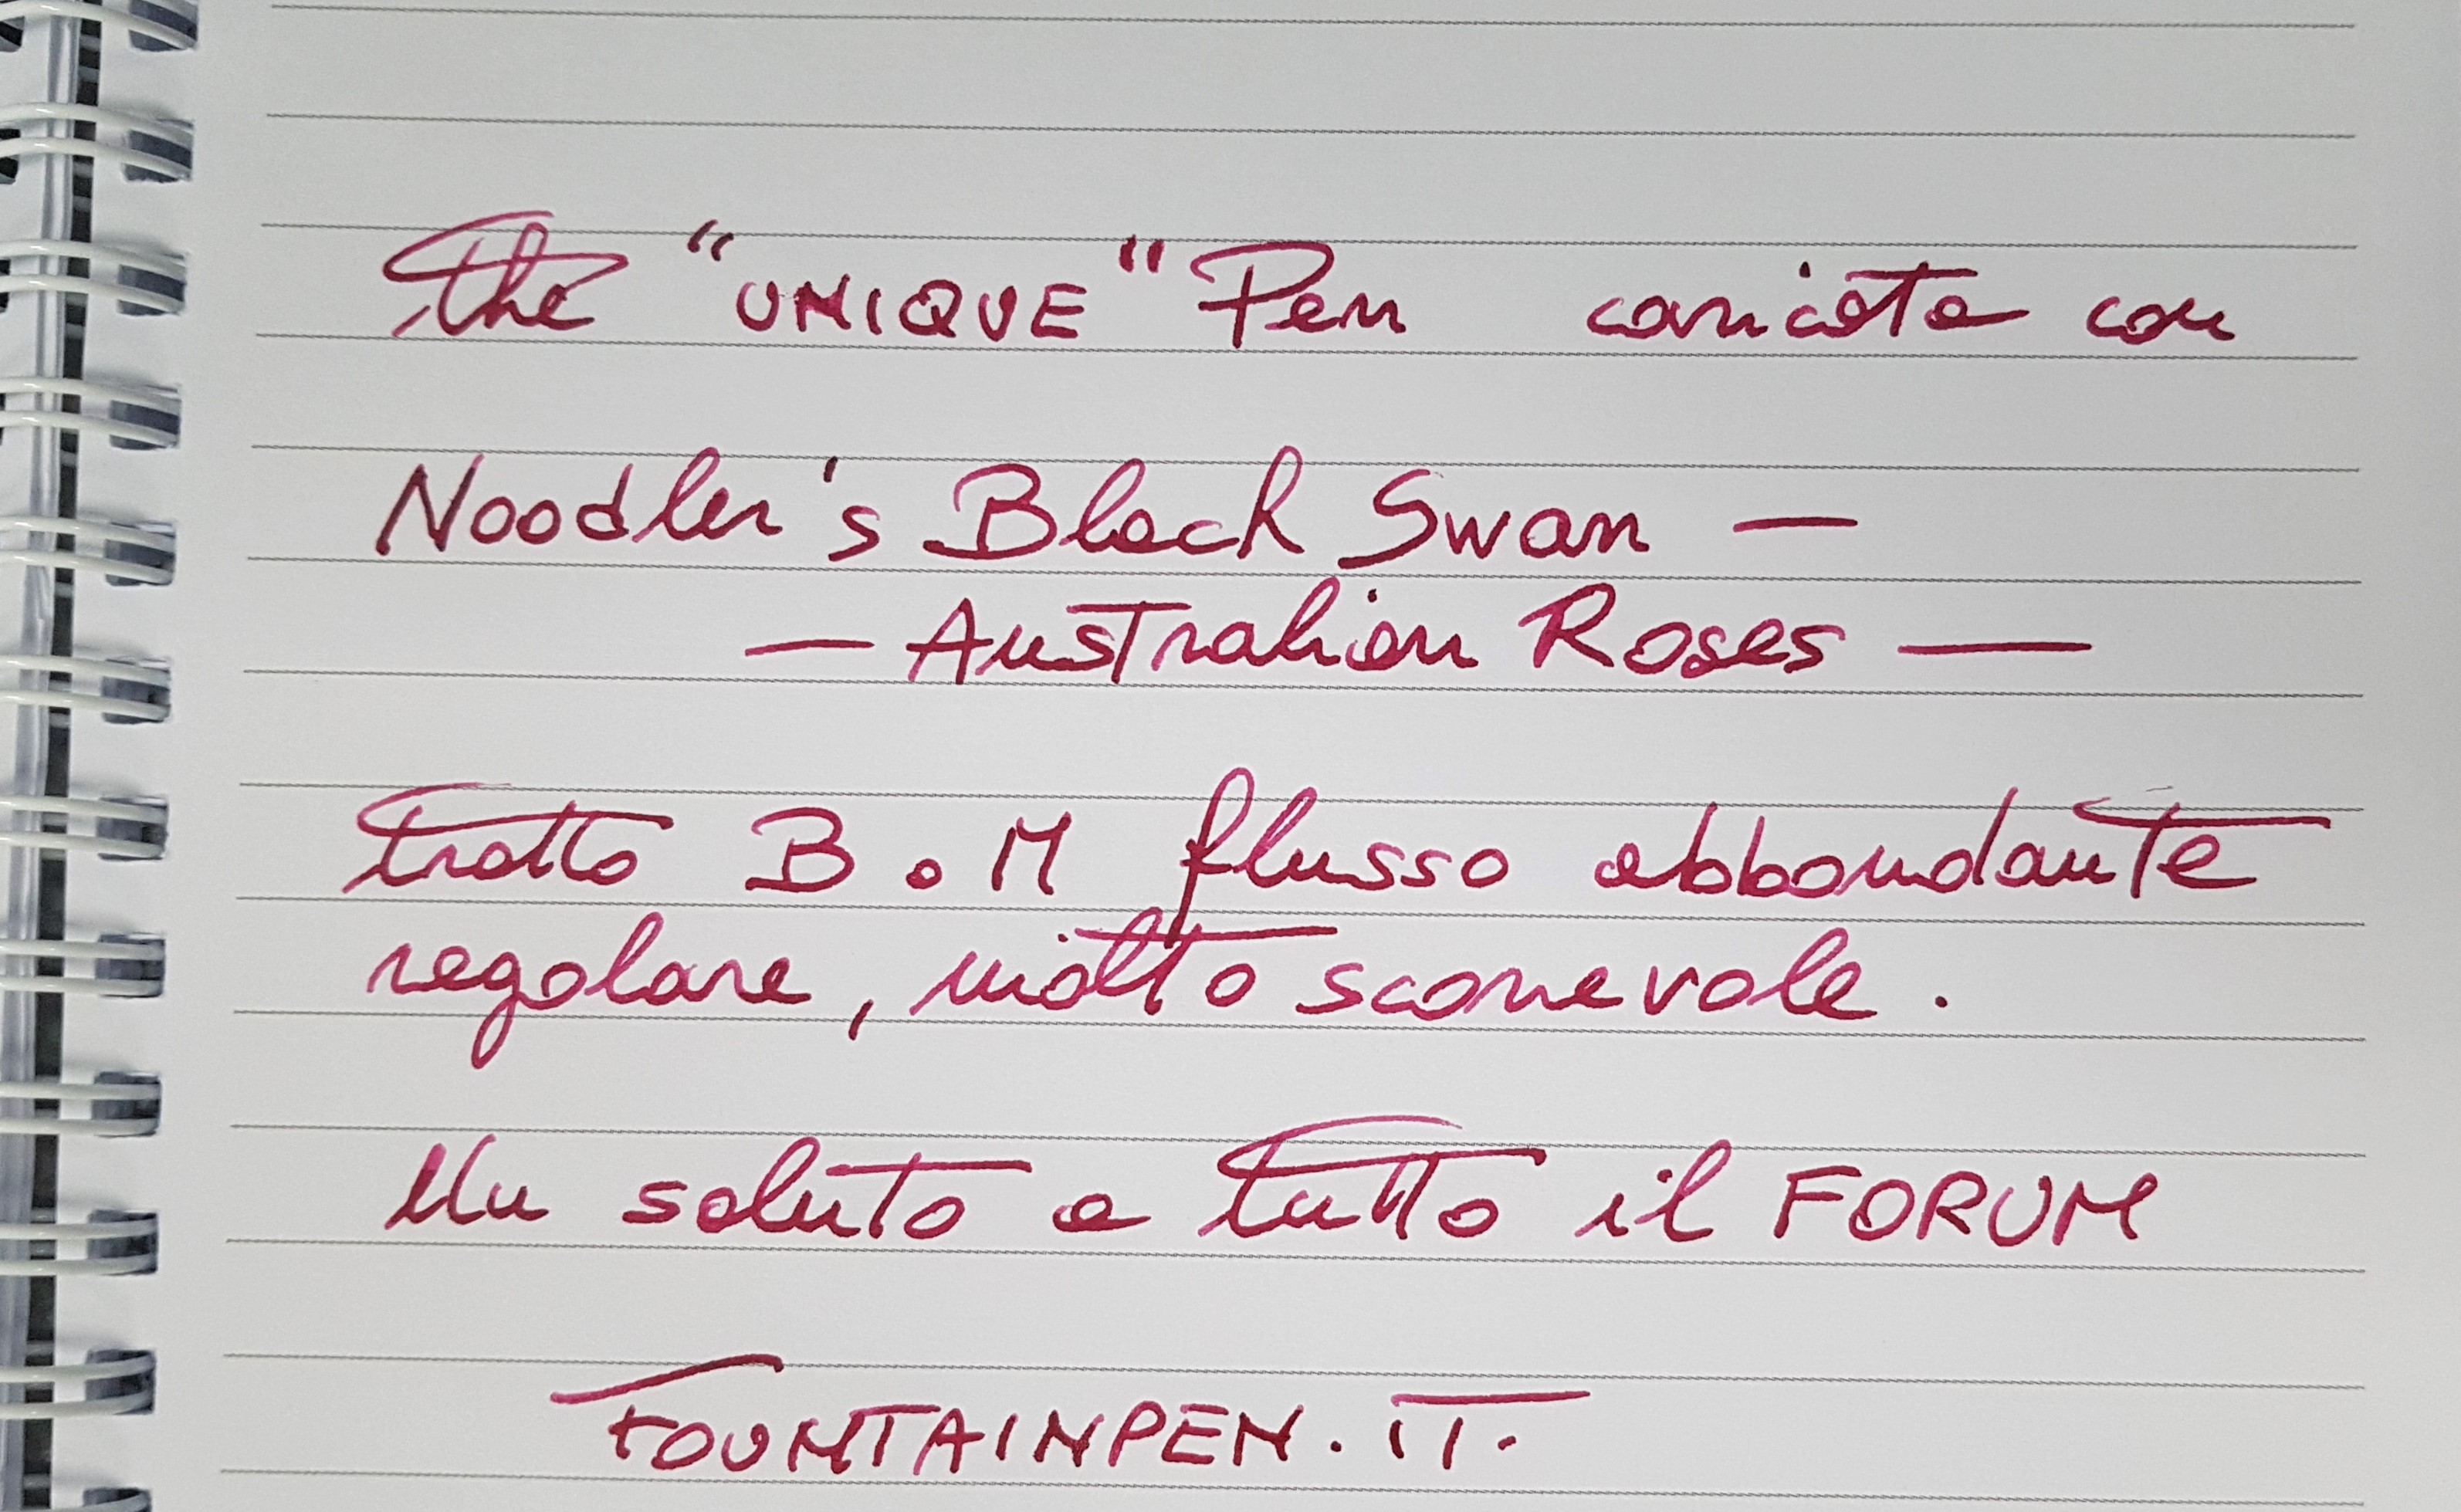 The "UNIQUE" Pen caricata con
Noodler's Black Swan —
— Australian Roses —
tratto B o M flusso abbondante
regolare, molto scorrevole.
Un saluto a tutto il FORUM
FOUNTAINPEN.IT.